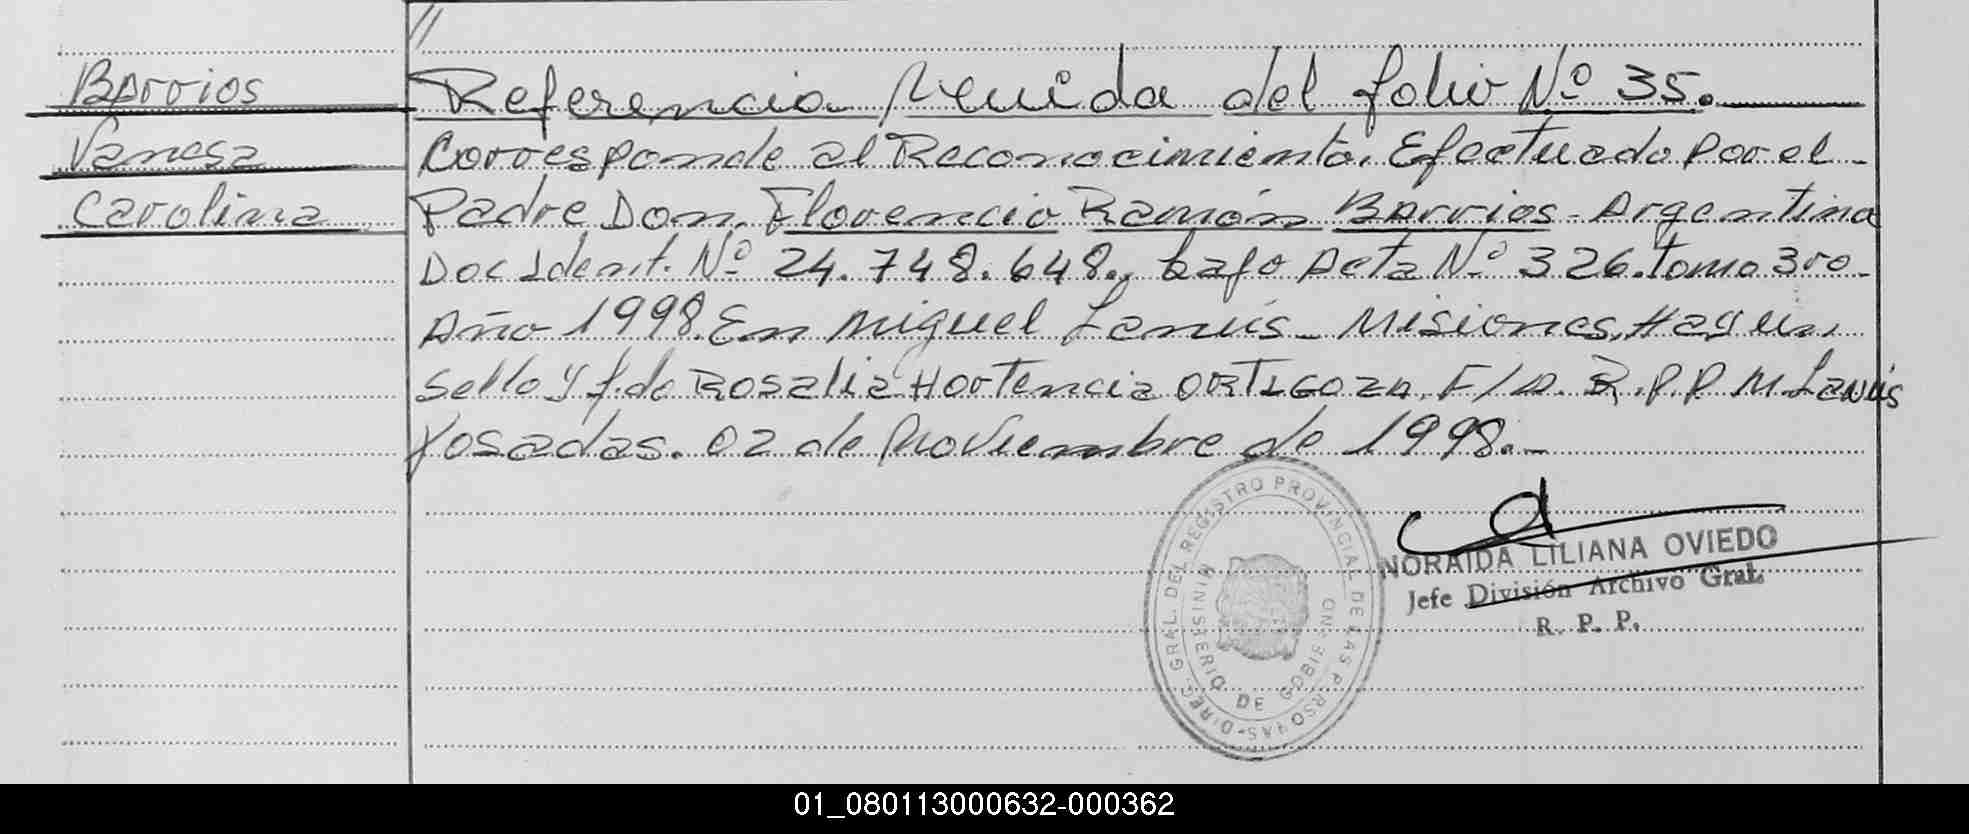 //
Barrios
Vanesa
Carolina
Referencia Venida del folio Nº 35.
Corresponde al Reconocimiento. Efectuado por el
Padre Don. Florencio Ramón Barrios - Argentina
Doc Ident. Nº 24.748.648., bajo Acta Nº 326. Tomo 3ro.
Año 1998. En Miguel Lanús - Misiones. Hay un
Sello y f.do Rosalia Hortencia ORTIGOZA. F/A. R.P.P. M. Lanús
Posadas. 02 de Noviembre de 1998.-
DIREC. GRAL. DEL REGISTRO PROVINCIAL DE LAS PERSONAS-
MINISTERIO DE GOBIERNO
NORAIDA LILIANA OVIEDO
Jefe División Archivo Gral.
R. P. P.
01_080113000632-000362